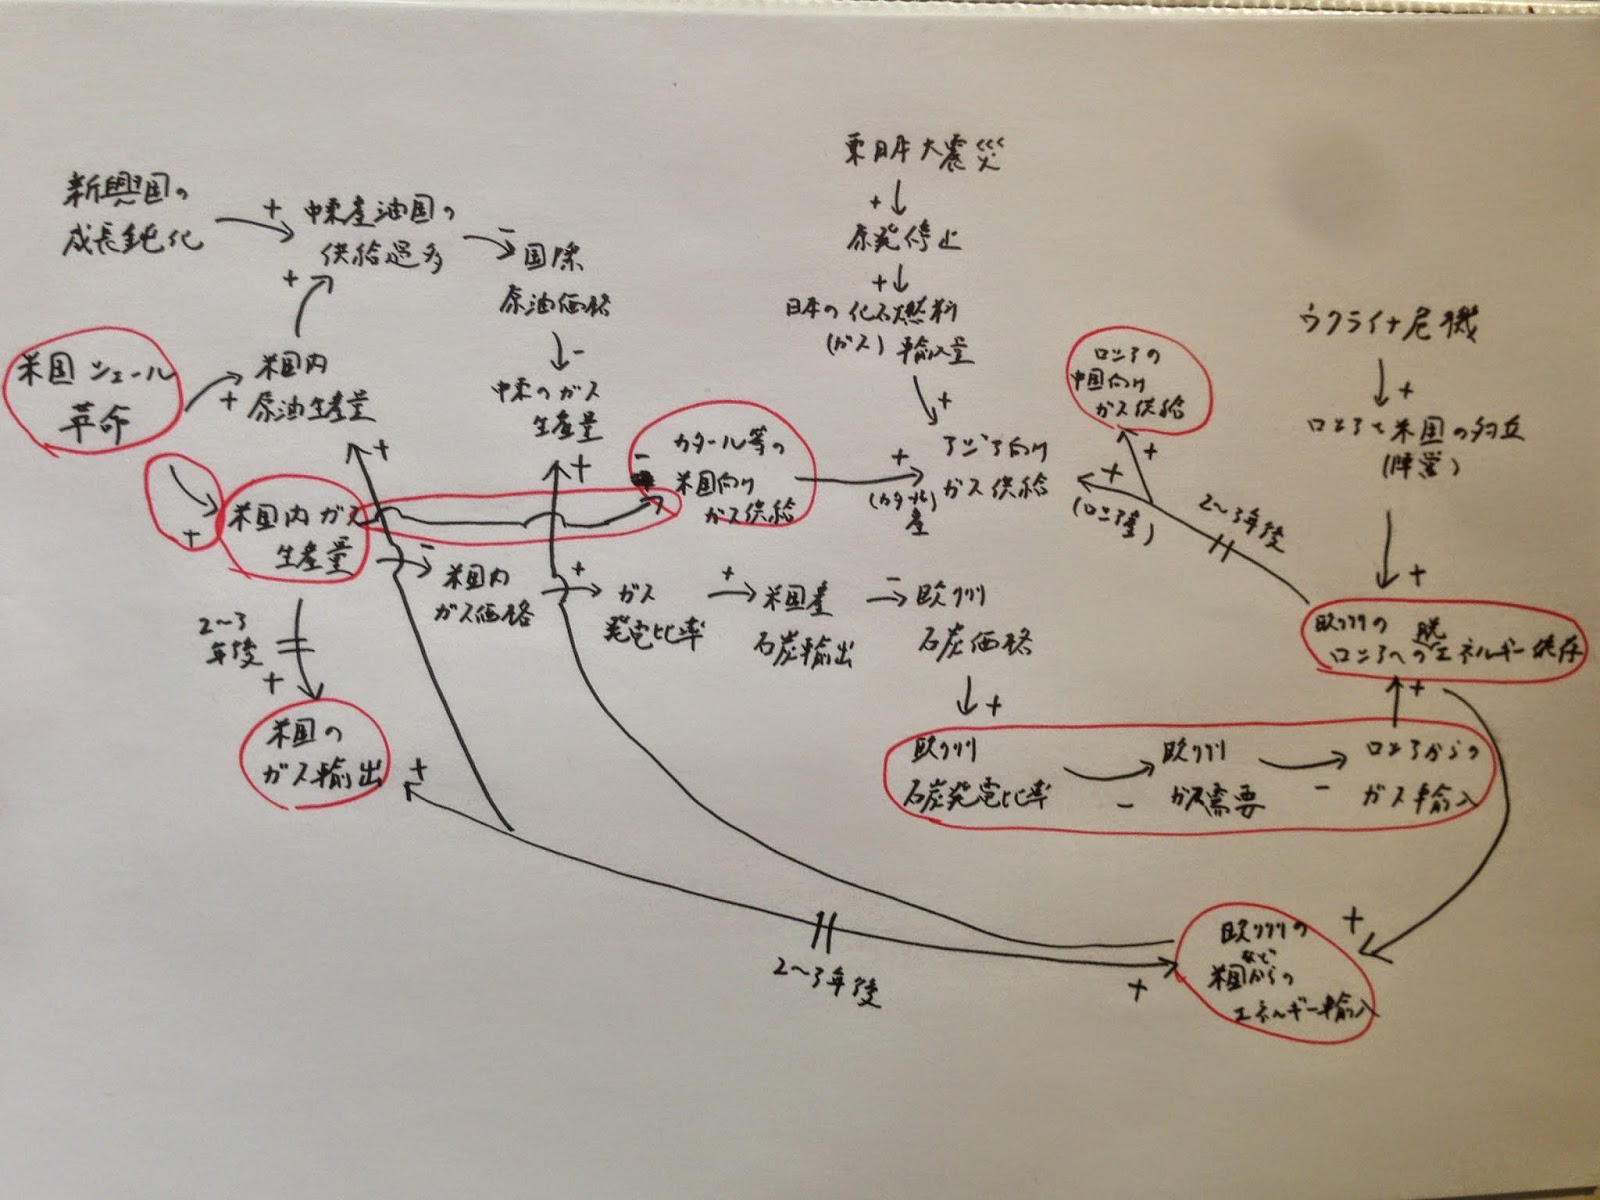 東日本大震災
+
原発停止
+
日本の化石燃料
(ガス) 輸入量
+
新興国の
成長鈍化
+
中東産油国の
供給過多
+
-
国際
原油価格
-
中東のガス
生産量
+
米国シェール
革命
+
米国内
原油生産量
+
+
米国内ガス
生産量
-
カタール等の
米国向け
ガス供給
+
(カタール)
産
アジア向け
ガス供給
+
(ロシア産)
ロシアの
中国向け
ガス供給
+
2〜3年後
ウクライナ危機
+
ロシアと米国の対立
(陣営)
+
欧州の 脱
ロシアへのエネルギー依存
+
-
米国内
ガス価格
+
ガス
発電比率
+
米国産
石炭輸出
-
欧州
石炭価格
+
欧州
石炭発電比率
-
欧州
ガス需要
-
ロシアからの
ガス輸入
2〜3
年後
+
米国の
ガス輸出
+
2〜3年後
+
+
欧州の
など
米国からの
エネルギー輸入